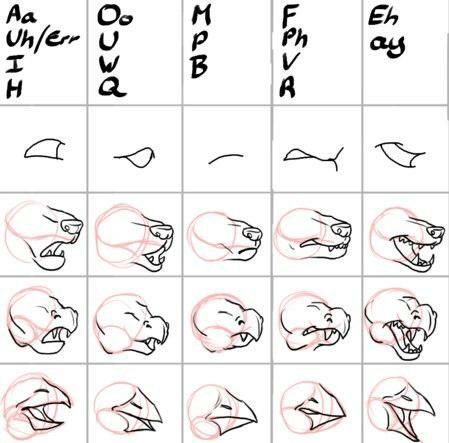 Aa
Uh/Err
I
H
Oo
U
W
Q
M
P
B
F
Ph
V
R
Eh
ay